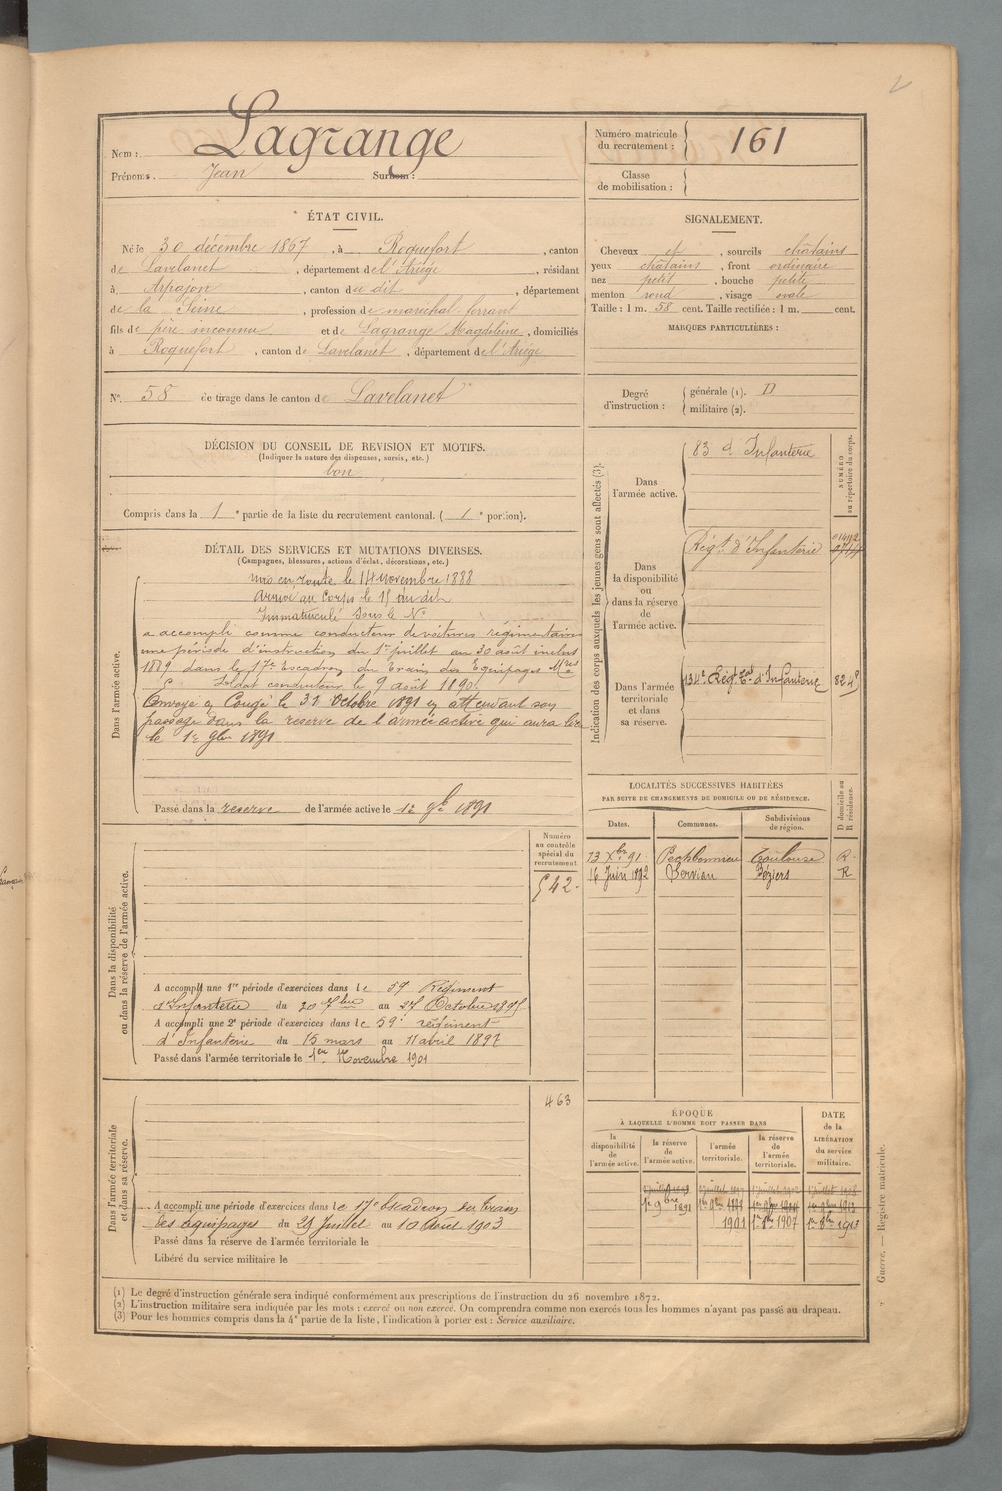 2
Nom : Lagrange
Prénoms. Jean Surnom :
Numéro matricule du recrutement : 161
Classe de mobilisation :
ÉTAT CIVIL.
Né le 30 décembre 1867, à Roquefort, canton
de Lavelanet, département de l'Ariége, résidant
à Arpajon, canton du dit, département
de la Seine, profession de maréchal-ferrant
fils de père inconnu et de Lagrange Magdeleine, domiciliés
à Roquefort, canton de Lavelanet, département de l'Ariége
N° 58 de tirage dans le canton de Lavelanet
DÉCISION DU CONSEIL DE REVISION ET MOTIFS.
(Indiquer la nature des dispenses, sursis, etc.)
bon
Compris dans la 1e partie de la liste du recrutement cantonal. (1e portion).
DÉTAIL DES SERVICES ET MUTATIONS DIVERSES.
(Campagnes, blessures, actions d'éclat, décorations, etc.)
Dans l'armée active.
mis en route le 14 novembre 1888
Arrivé au Corps le 15 du dit
Immatriculé sous le N°
a accompli comme conducteur de voitures régimentaires
une période d'instruction du 1er juillet au 30 août inclus
1889 dans le 17e Escadron du train des Equipages Mres
Soldat conducteur le 9 août 1890.
Envoyé en Congé le 31 Octobre 1891 en attendant son
passage dans la reserve de l'armée active qui aura lieu
le 1er 9bre 1891
Passé dans la reserve de l'armée active le 1er 9bre 1891
Dans la disponibilité ou dans la réserve de l'armée active.
Numéro au contrôle spécial du recrutement
542
A accompli une 1re période d'exercices dans le 59 Régiment
d'Infanterie du 30 7bre au 27 Octobre 1895
A accompli une 2e période d'exercices dans le 59e régiment
d'Infanterie du 15 mars au 11 avril 1897
Passé dans l'armée territoriale le 1er Novembre 1901
Dans l'armée territoriale et dans sa réserve.
463
A accompli une période d'exercices dans le 17e Escadron du train
des équipages du 29 Juillet au 10 Août 1903
Passé dans la réserve de l'armée territoriale le
Libéré du service militaire le
SIGNALEMENT.
Cheveux et, sourcils châtains
yeux châtains, front ordinaire
nez petit, bouche petite
menton rond, visage ovale
Taille : 1 m. 58 cent. Taille rectifiée : 1 m. cent.
MARQUES PARTICULIÈRES :
Degré d'instruction :
générale (1). D
militaire (2).
Indication des corps auxquels les jeunes gens sont affectés (3).
NUMÉRO au répertoire du corps.
Dans l'armée active.
83 d'Infanterie
Dans la disponibilité ou dans la réserve de l'armée active.
Régt. d'Infanterie
Dans l'armée territoriale et dans sa réserve.
134e Régt Tal d'Infanterie
LOCALITÉS SUCCESSIVES HABITÉES
PAR SUITE DE CHANGEMENTS DE DOMICILE OU DE RÉSIDENCE.
D domicile ou R résidence.
Dates. Communes. Subdivisions de région.
13 Xbre 91 Pechbonnieu Toulouse R
16 Juin 1892 Servian Béziers R
ÉPOQUE
À LAQUELLE L'HOMME DOIT PASSER DANS
la disponibilité de l'armée active.
la réserve de l'armée active.
l'armée territoriale.
la réserve de l'armée territoriale.
DATE de la LIBÉRATION du service militaire.
1er 9bre 1891
1901
1er 8bre 1907
1er 8bre 1913
(1) Le degré d'instruction générale sera indiqué conformément aux prescriptions de l'instruction du 26 novembre 1872.
(2) L'instruction militaire sera indiquée par les mots : exercé ou non exercé. On comprendra comme non exercés tous les hommes n'ayant pas passé au drapeau.
(3) Pour les hommes compris dans la 4e partie de la liste, l'indication à porter est : Service auxiliaire.
Guerre. — Registre matricule.